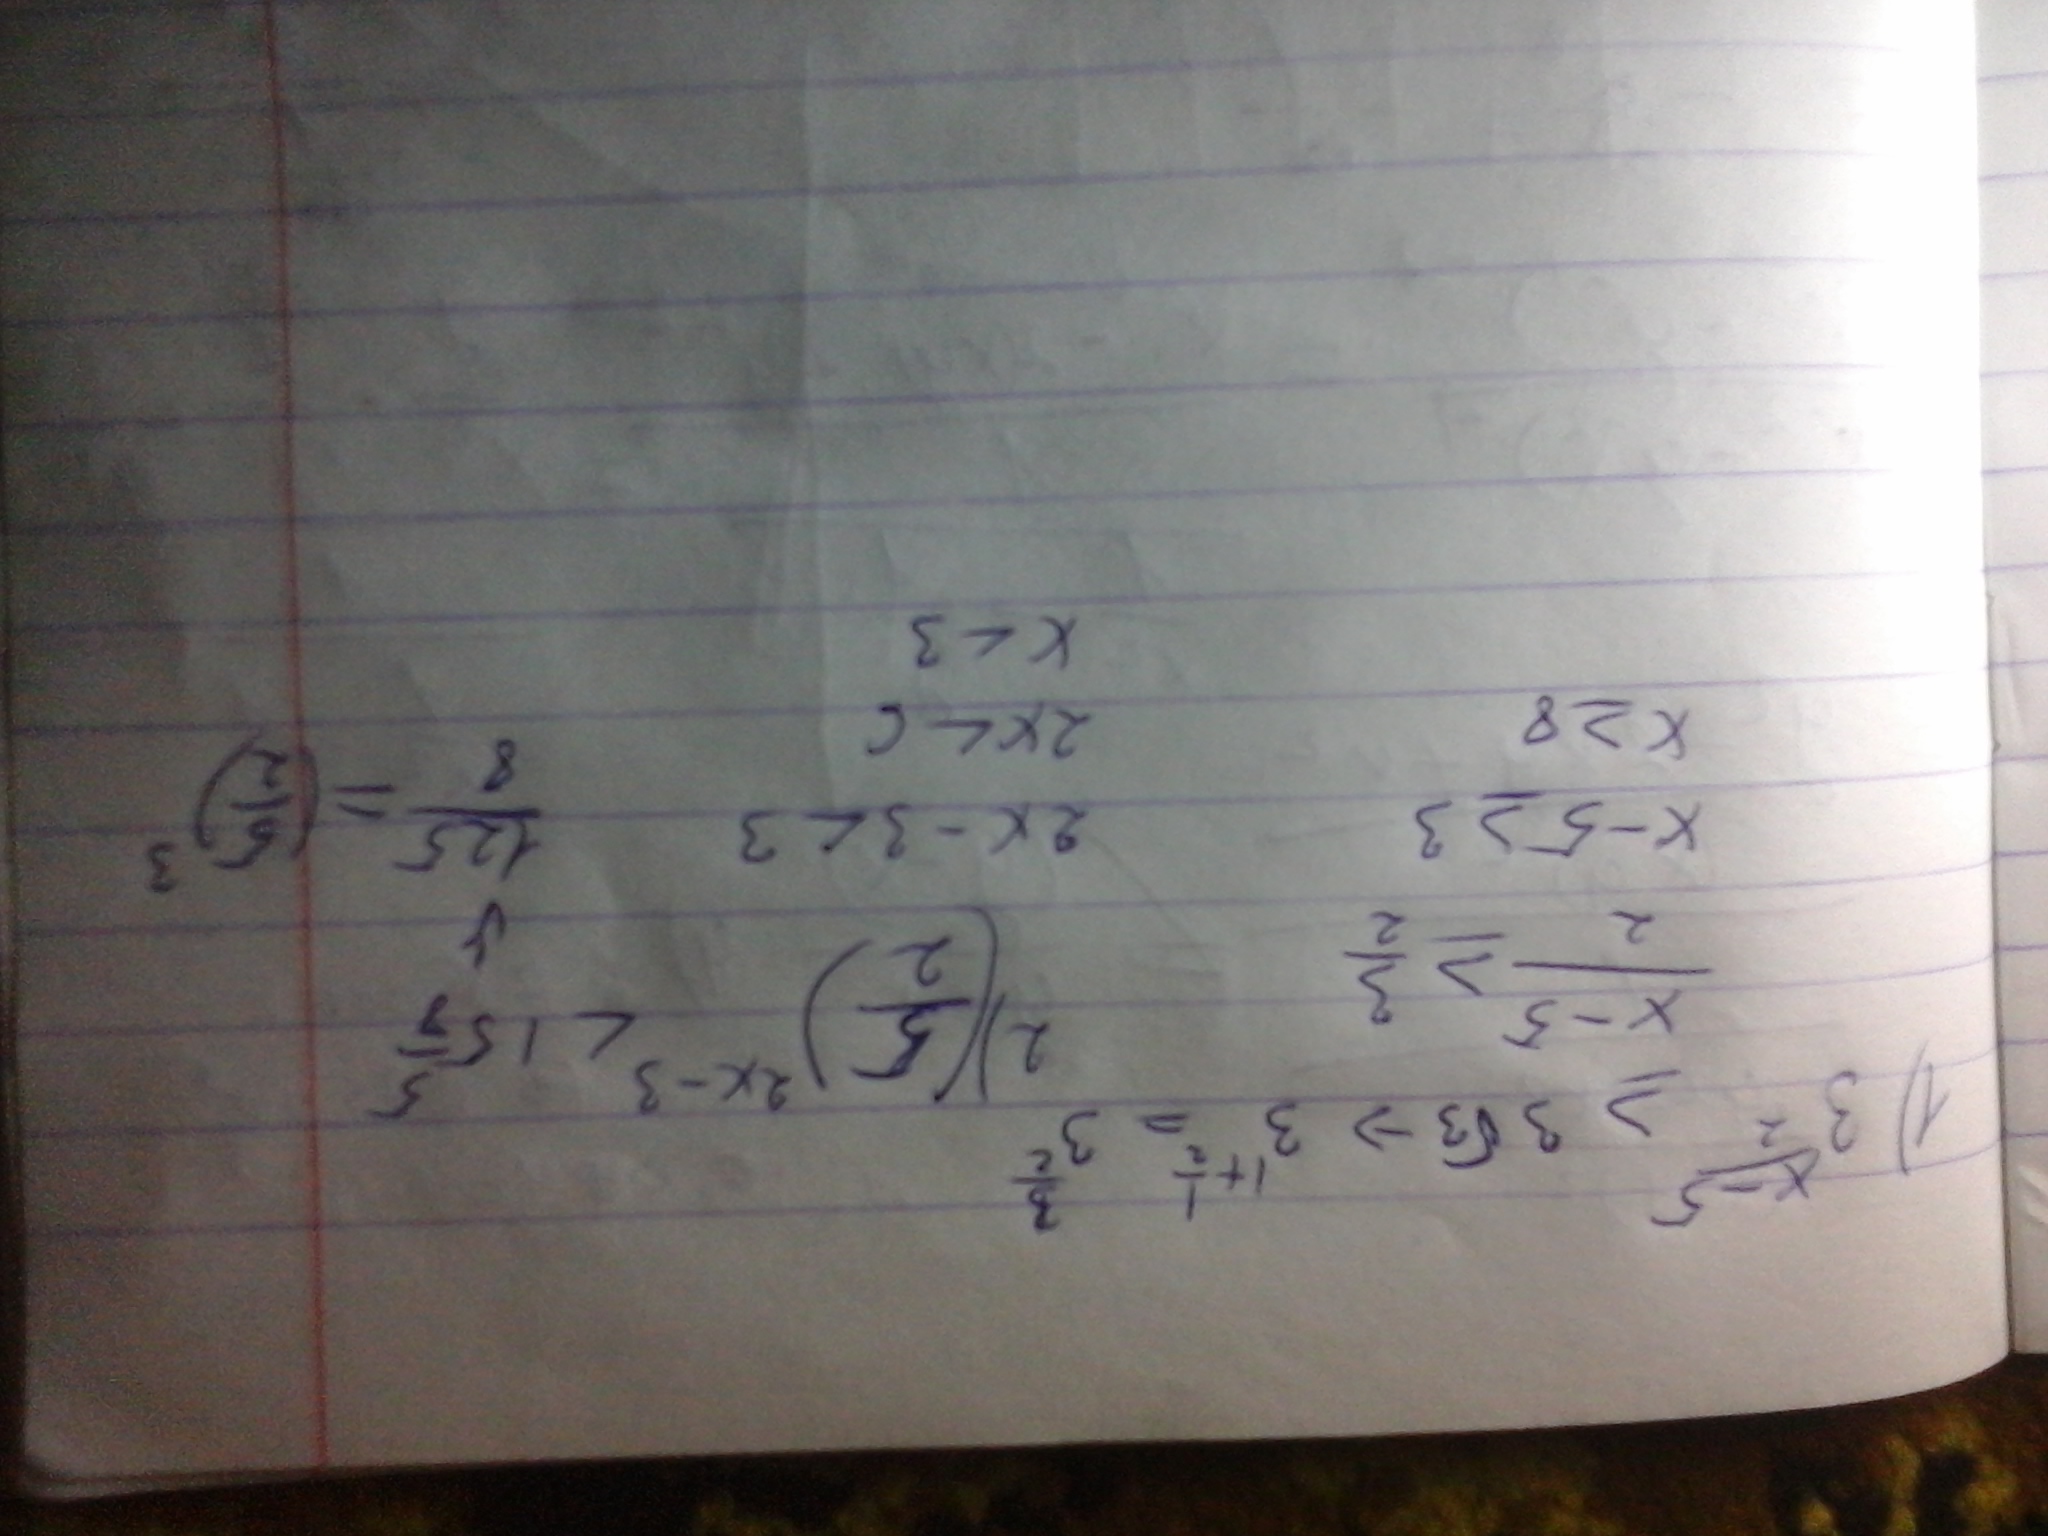 1) 3^{\frac{x-5}{2}} ≥ 3√3 → 3^{1+\frac{1}{2}} = 3^{\frac{3}{2}}
\frac{x-5}{2} ≥ \frac{3}{2}
x-5≥3
x≥8
2) (\frac{5}{2})^{2x-3} < 15\frac{5}{8}
↓
2x-3<3
\frac{125}{8} = (\frac{5}{2})^3
2x<6
x<3